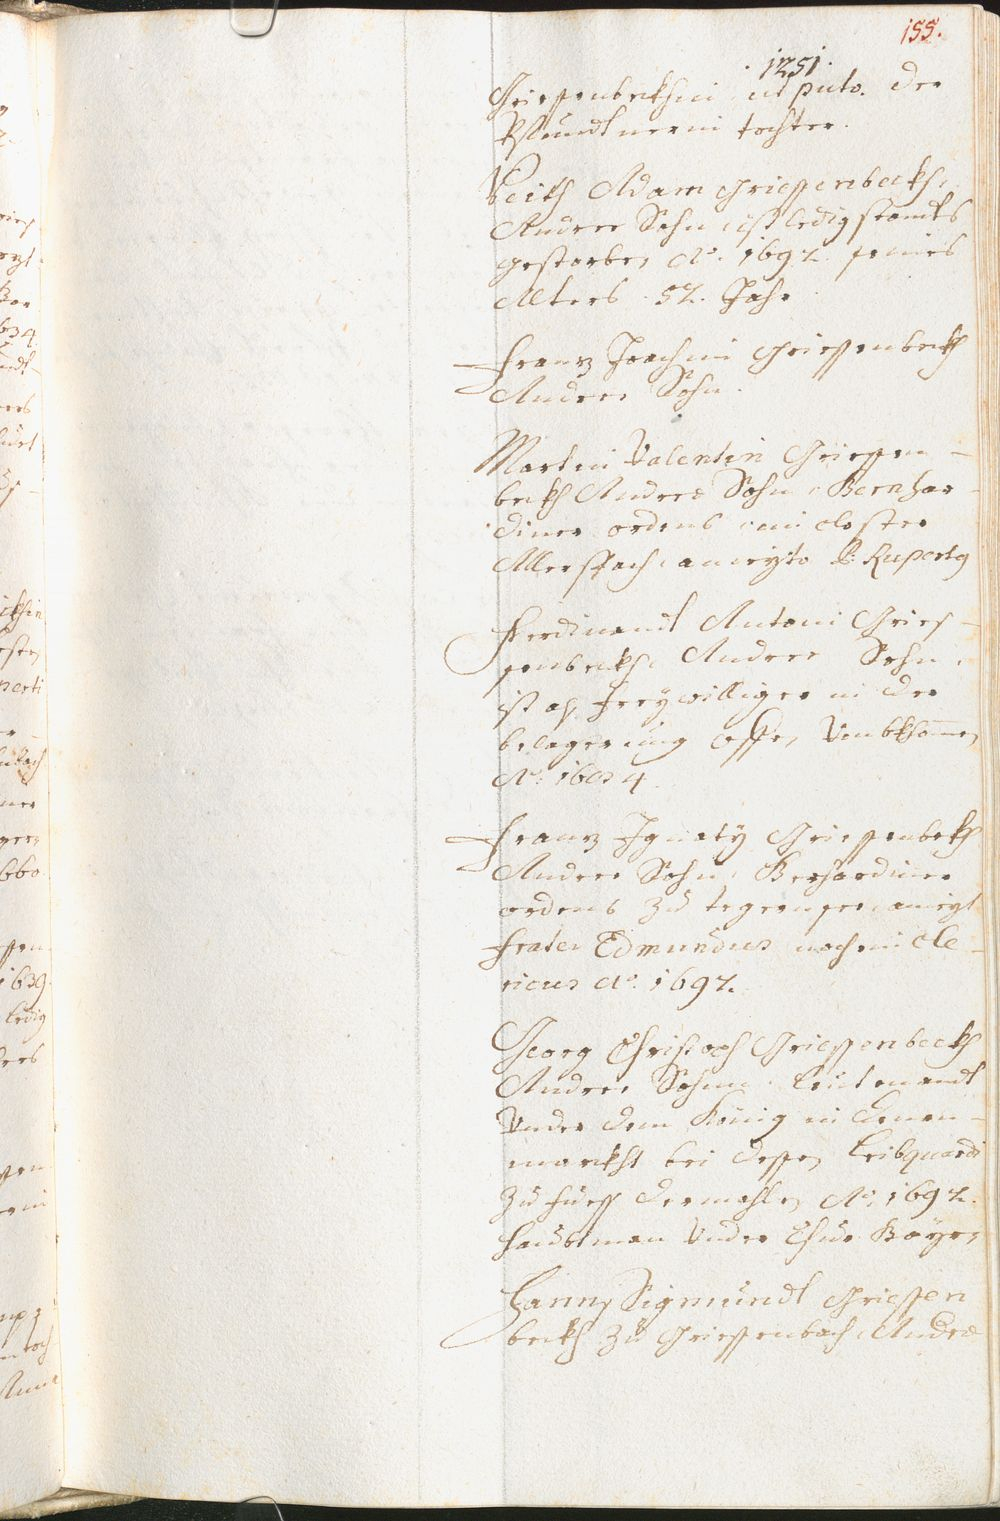 155.
. 1251.
Griessenbeckhin ut puto. der
Pfundtnerin tochter.
Veith Adam Griessenbeckh,
Andree Sohn ist ledig standts
gestorben Aº. 1697. seines
Alters 57. Jahr.
Franz Joachim Griessenbeckh
Andree Sohn.
Martin Valentin Griessen-
beckh Andreæ Sohn, Bernhar-
diner ordens, im closter
Allerspach, anieczto P: Rupertg
Ferdinandt Antoni Gries-
senbeckh, Andree Sohn,
ist als freywilliger in der
belagerung Offen Umbkhomen
Aº. 1684.
Franz Ignaty Griessenbeckh
Andree Sohn, Berhardiner
ordens zu tegernsee aniezt
frater Edmundus noch ein Cle-
ricus Aº. 1697.
Georg Christoph Griessenbeckh
Andree Sohn, Leutenandt
Under dem König in Denen-
marckht bei dessen Leibquardi
zu fuess dermahlen Aº. 1697.
haubtman Under Chur Bayrn
Hanns Sigmundt Griessen
beckh zu Griessenbach, Andreæ